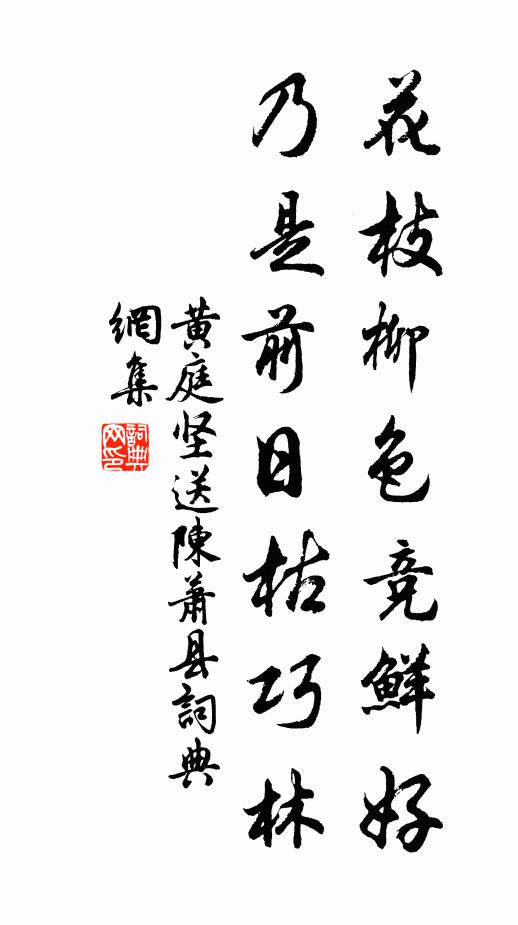 花枝柳色竞鮮好
乃是前日枯巧林
黄庭坚送陳萧县詞典
網集
詞典
网印